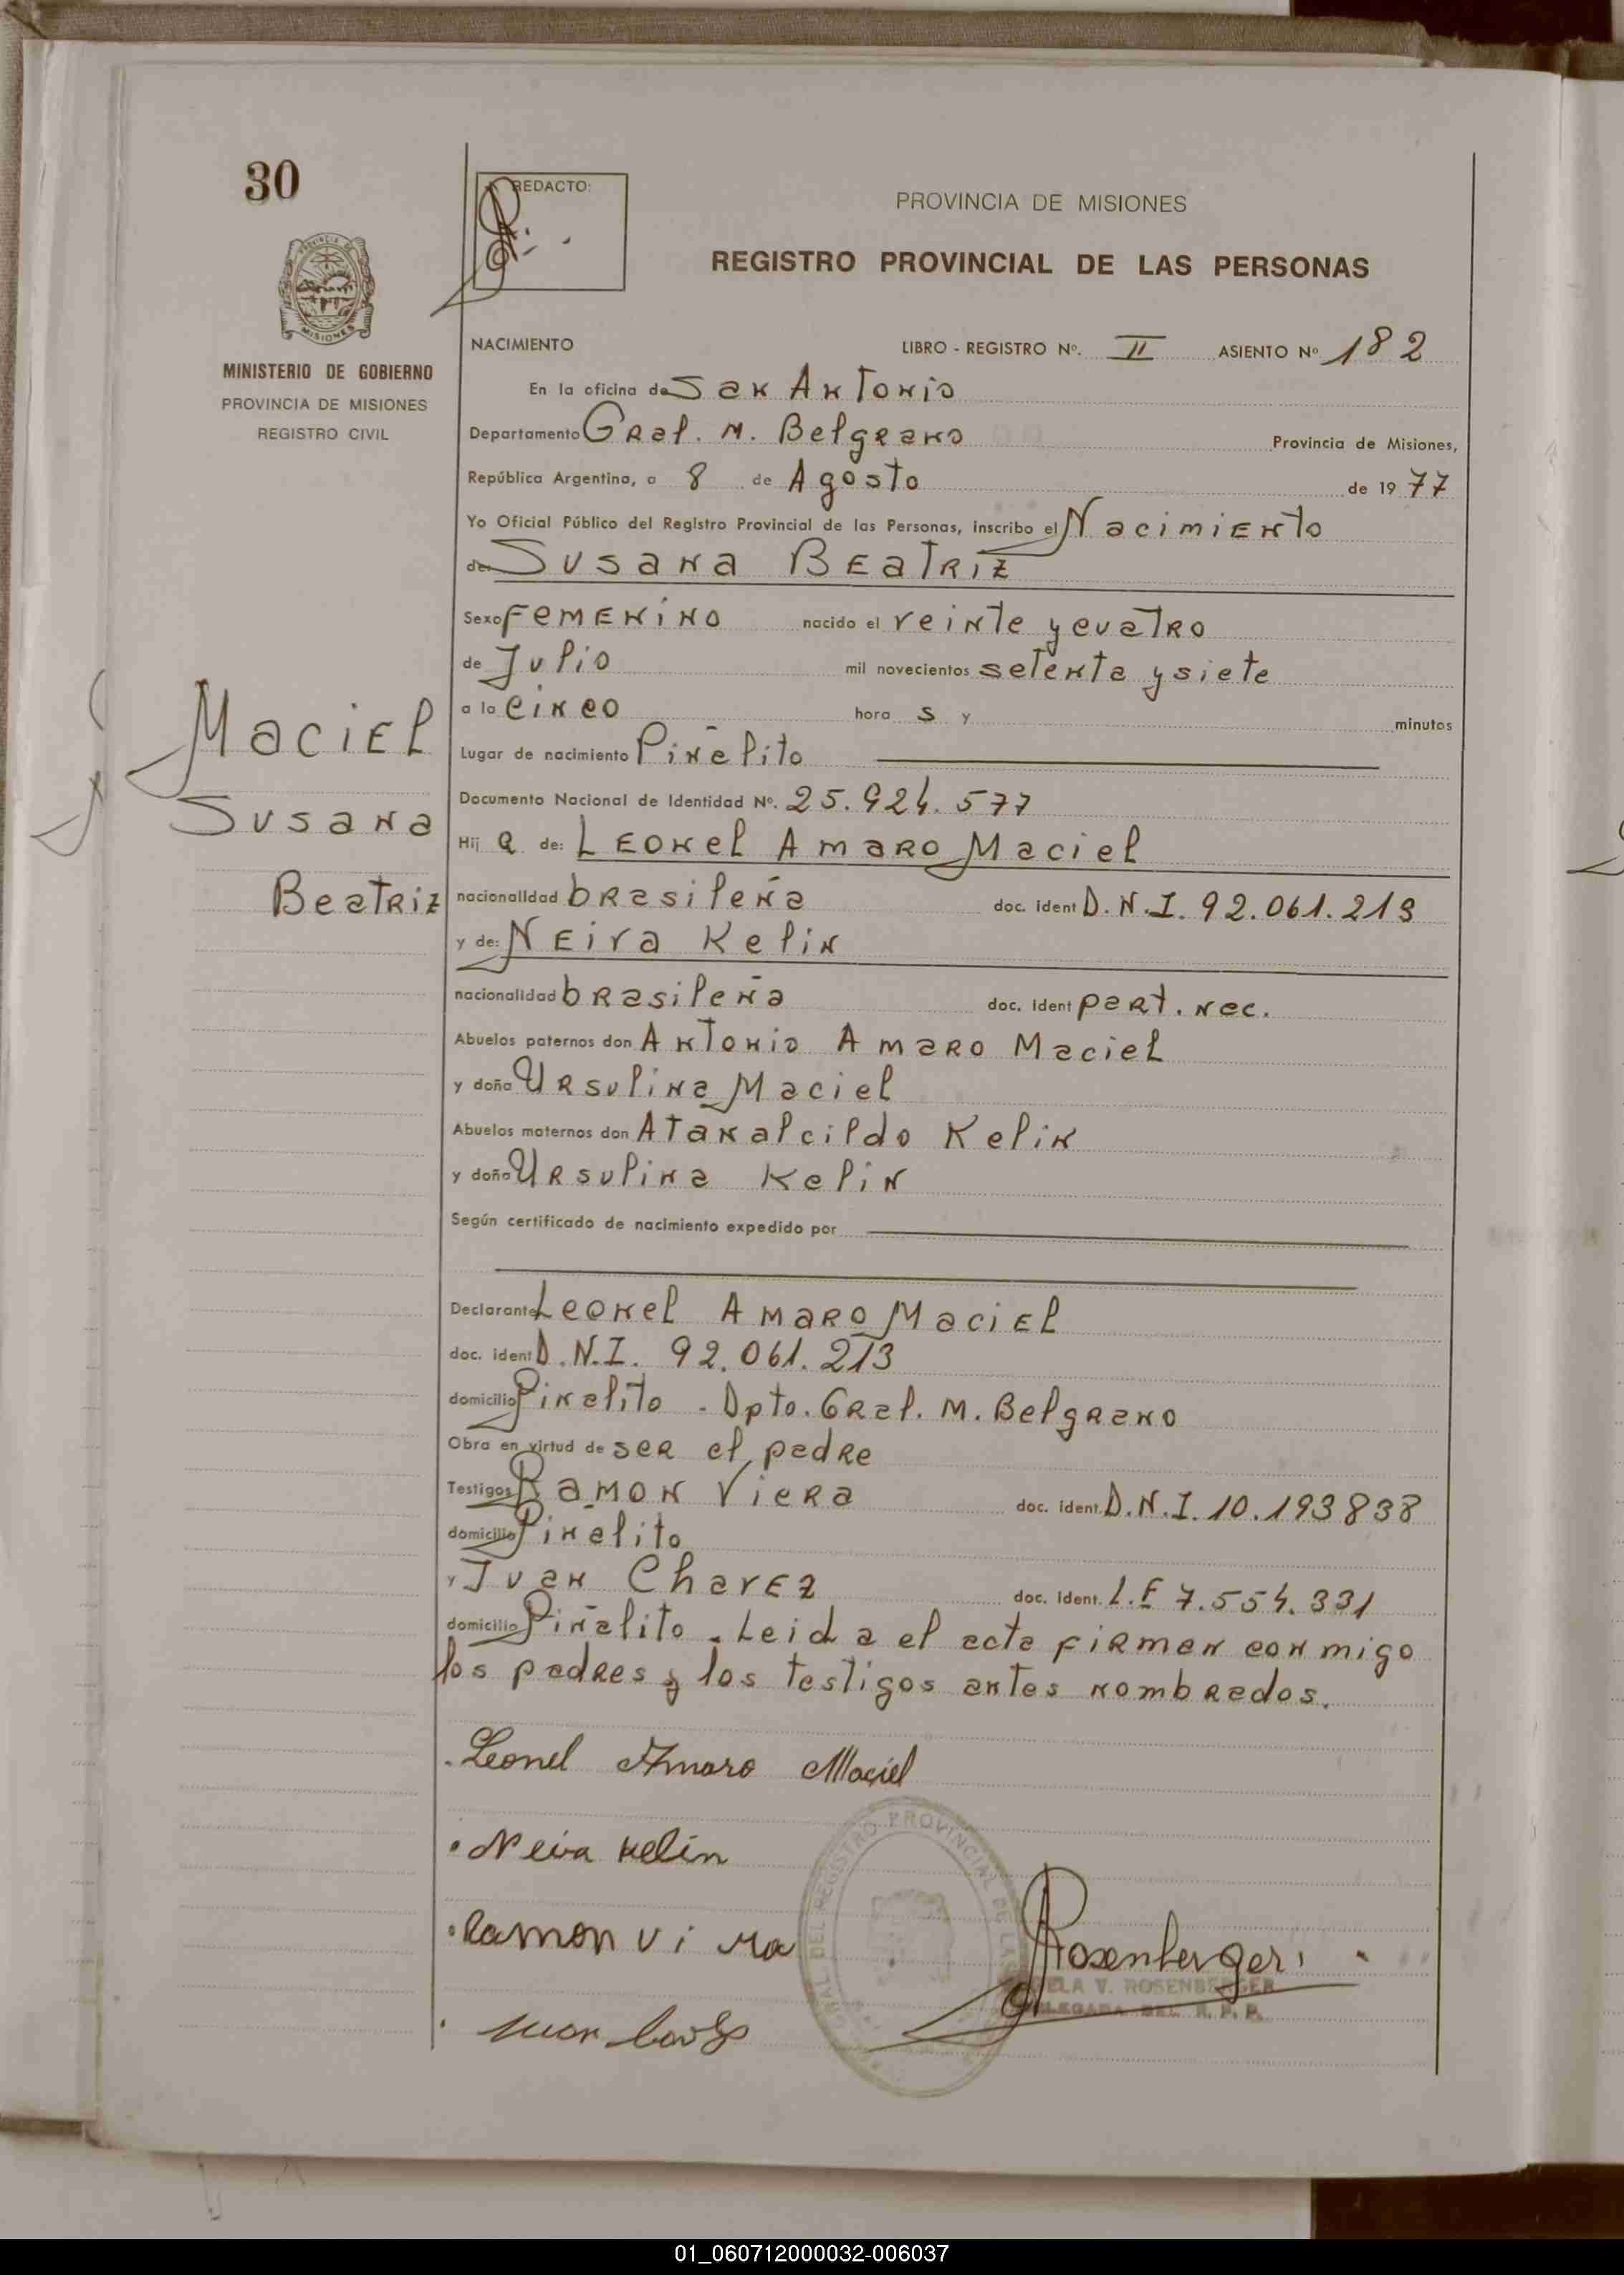 30
REDACTO:
PROVINCIA DE MISIONES
REGISTRO PROVINCIAL DE LAS PERSONAS
MISIONES
MINISTERIO DE GOBIERNO
PROVINCIA DE MISIONES
REGISTRO CIVIL
NACIMIENTO LIBRO - REGISTRO Nº. II ASIENTO Nº 182
En la oficina de San Antonio
Departamento Gral. M. Belgrano Provincia de Misiones,
República Argentina, a 8 de Agosto de 1977
Yo Oficial Público del Registro Provincial de las Personas, inscribo el Nacimiento
de: Susana Beatriz
Sexo Femenino nacido el veinte y cuatro
de Julio mil novecientos setenta y siete
a la cinco hora s y minutos
Lugar de nacimiento Piñalito
Documento Nacional de Identidad Nº. 25.924.577
Hij a de: Leonel Amaro Maciel
nacionalidad brasileña doc. ident D.N.I. 92.061.213
y de: Neiva Kelin
nacionalidad brasileña doc. ident part. nac.
Abuelos paternos don Antonio Amaro Maciel
y doña Ursulina Maciel
Abuelos maternos don Atanalcildo Kelin
y doña Ursulina Kelin
Según certificado de nacimiento expedido por
Declarante Leonel Amaro Maciel
doc. ident D.N.I. 92.061.213
domicilio Piñalito - Dpto. Gral. M. Belgrano
Obra en virtud de ser el padre
Testigos Ramon Viera doc. ident. D.N.I. 10.193838
domicilio Piñalito
y Juan Chavez doc. ident. L.E 7.554.331
domicilio Piñalito. Leida el acta firman conmigo
los padres y los testigos antes nombrados.
Maciel
Susana
Beatriz
Leonel Amaro Maciel
Neiva Kelin
Ramon vi ra
Rosenberger
ELA V. ROSENBERGER
DELEGADA DEL R. P. P.
DEL REGISTRO PROVINCIAL DE LAS
01_060712000032-006037